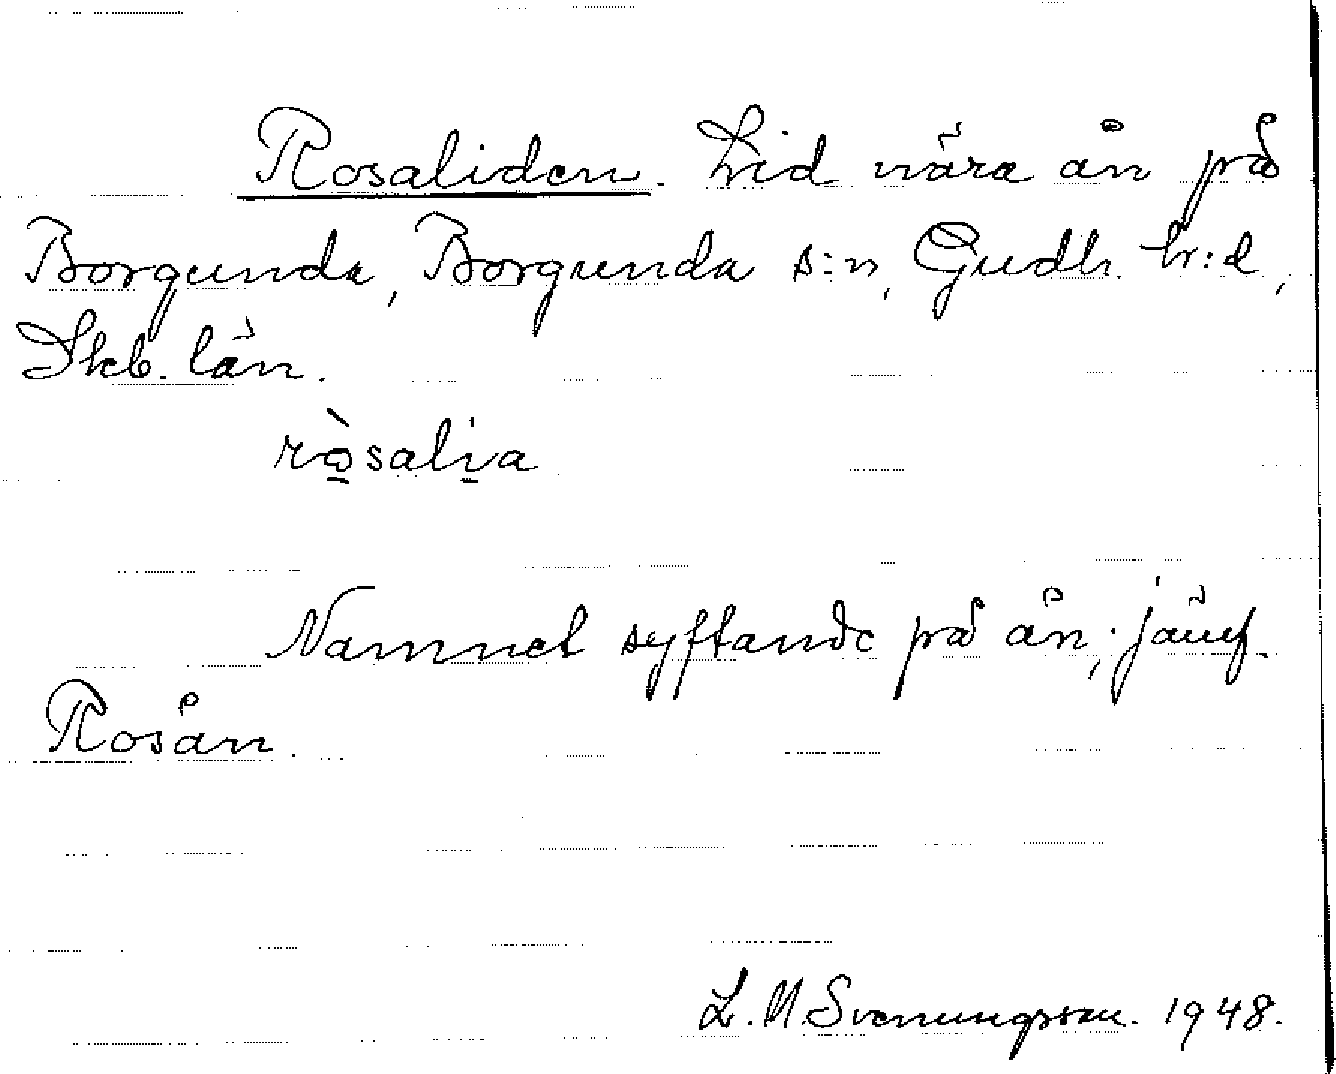 Rosaliden. Lid nära ån på
Borgunda, Borgunda s:n, Gudh. hr:d,
Skb. län.
rò̱sali̱a
Namnet syftande på ån, jämf.
Rosån.
L. M. Svenungsson. 1948.